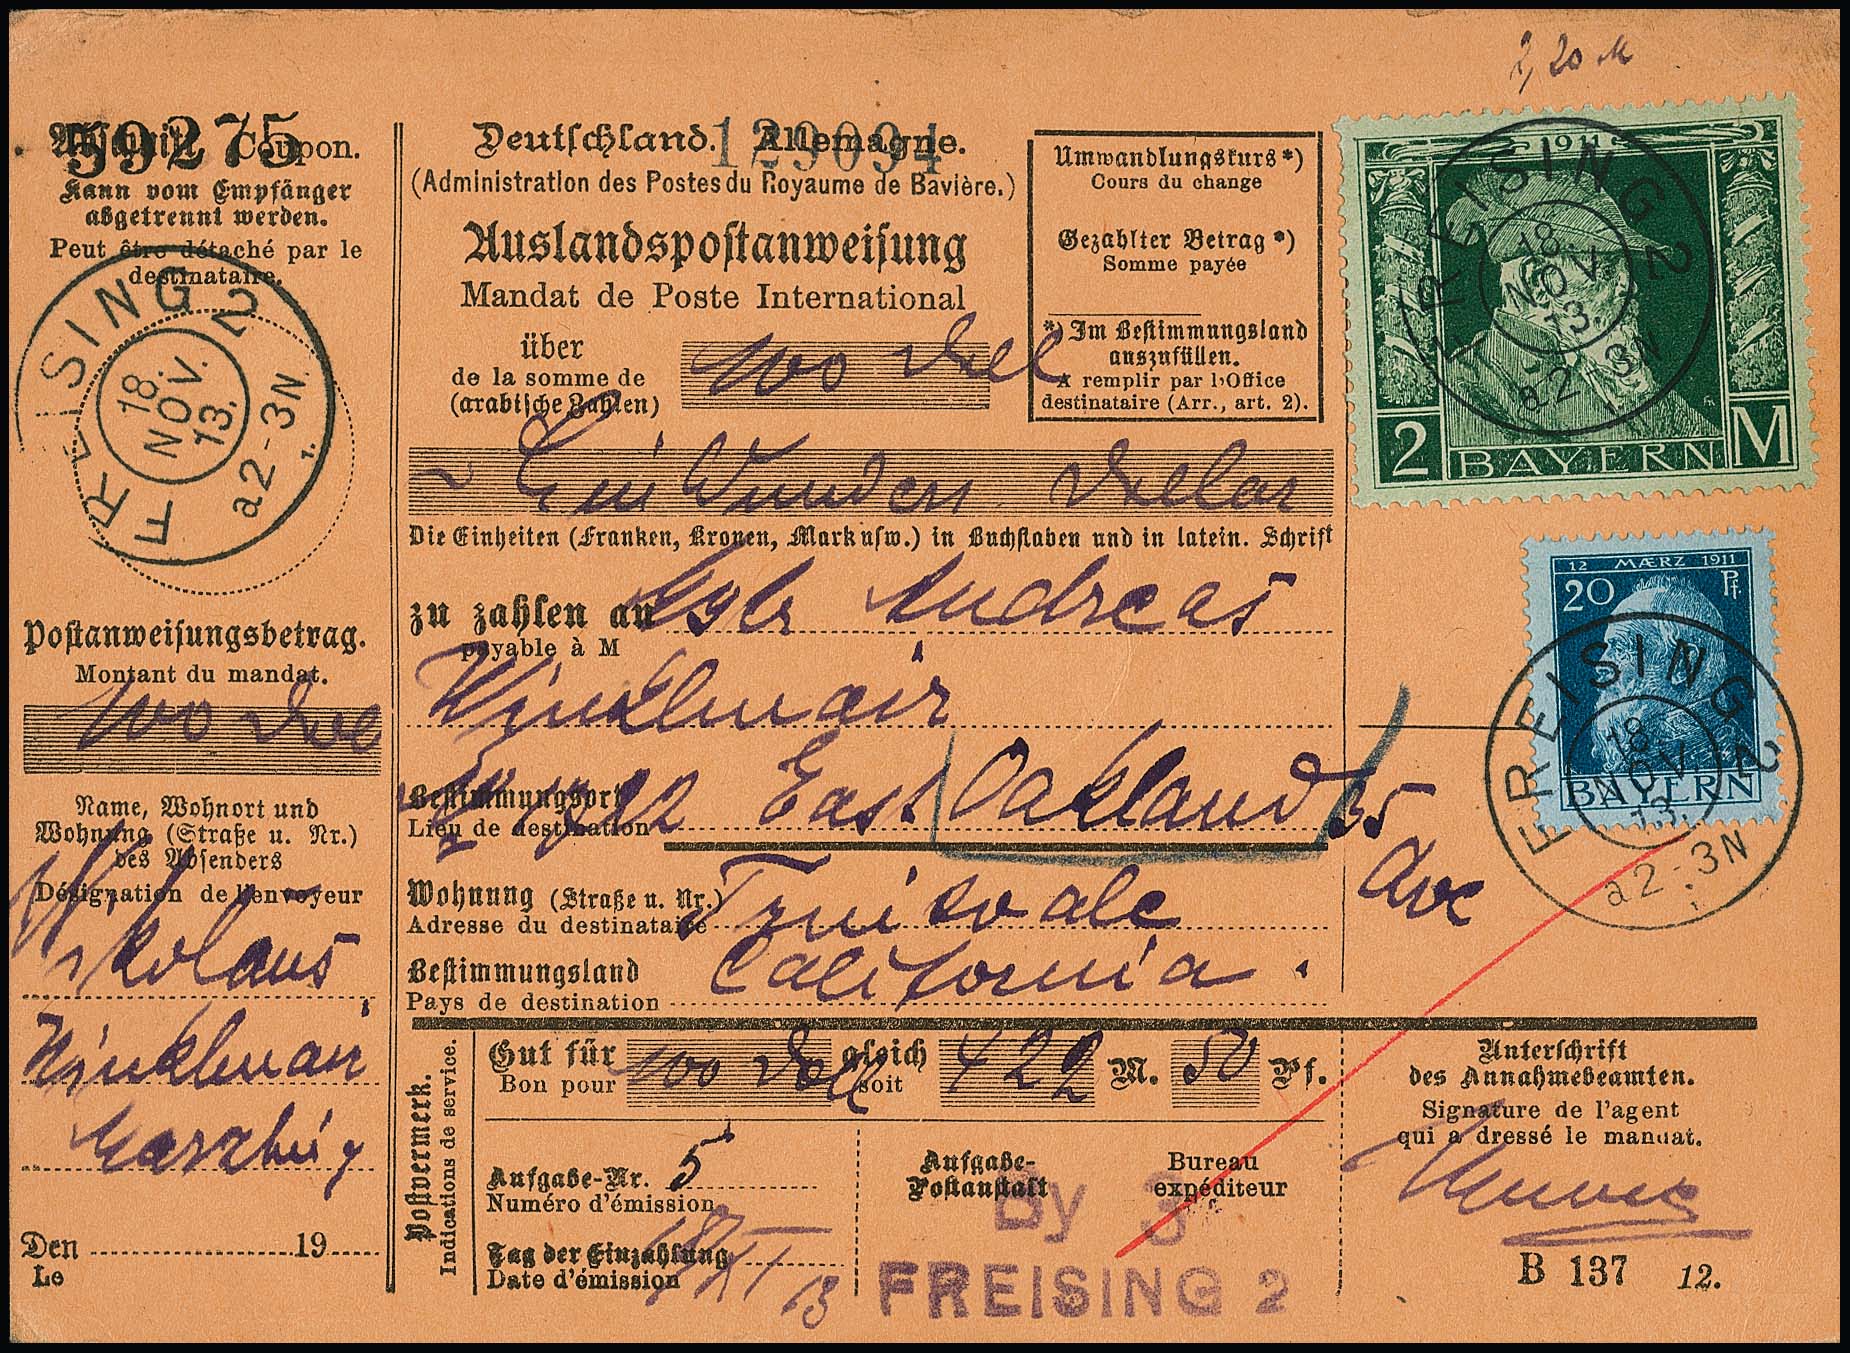 2,20 M
59275
Abschnitt. Coupon.
Kann vom Empfänger
abgetrennt werden.
Peut être détaché par le
destinataire.
FREISING 2
18.
NOV.
13.
a2-3N.
Postanweisungsbetrag.
Montant du mandat.
100 Doll
Name, Wohnort und
Wohnung (Straße u. Nr.)
des Absenders
Désignation de l'envoyeur
Nikolaus
Winklmair
Marzling
Den 19
Le
Deutschland. Allemagne.
129094
(Administration des Postes du Royaume de Bavière.)
Auslandspostanweisung
Mandat de Poste International
über
de la somme de
(arabische Zahlen)
100 Doll
Ein Hundert Dollar
Die Einheiten (Franken, Kronen, Mark usw.) in Buchstaben und in latein. Schrift
zu zahlen an Andreas
payable à M
Winklmair
Bestimmungsort East Oakland 35
Lieu de destination
Ave
Wohnung (Straße u. Nr.) Fruitvale
Adresse du destinataire
Bestimmungsland California.
Pays de destination
Umwandlungskurs *)
Cours du change
Gezahlter Betrag *)
Somme payée
*) Im Bestimmungsland
auszufüllen.
A remplir par l'Office
destinataire (Arr., art. 2).
1911
2 BAYERN M
FREISING 2
18.
NOV.
13.
a2-3N
12 MÆRZ 1911
20 Pf.
BAYERN
FREISING 2
18.
NOV.
13.
a2-3N
Postvermerk.
Indications de service.
Gut für 100 Doll gleich 422 M. 50 Pf.
Bon pour soit
Aufgabe-Nr. 5
Numéro d'émission
Tag der Einzahlung 18/XI 13
Date d'émission
Aufgabe- Bureau
Postanstalt expéditeur
By 3
FREISING 2
Unterschrift
des Annahmebeamten.
Signature de l'agent
qui a dressé le mandat.
B 137 12.